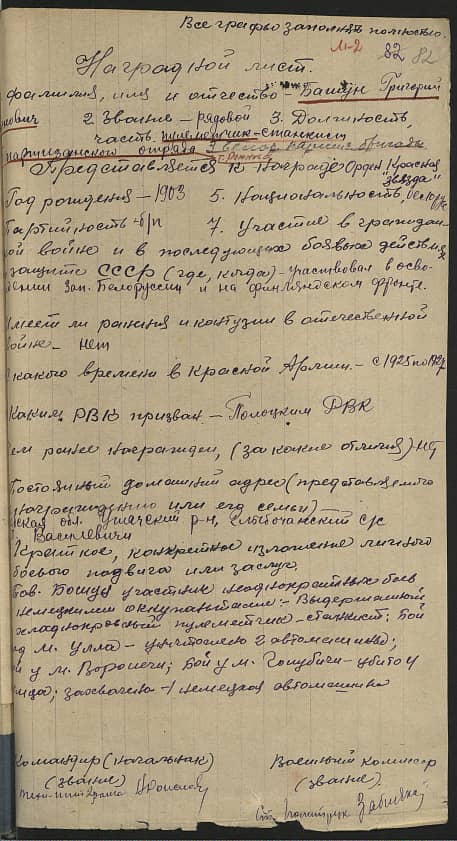 Все графы заполнять полностью.
м-2 82 82
Наградной лист.
фамилия, имя и отчество - Башун Григорий
нович 2 Звание - рядовой 3. Должность,
часть пулеметчик-станкист
партизанского отряда
Представляется к награде Орден "Красная
звезда"
Год рождения - 1903 5. Национальность, белорус
Партийность - б/п 7. Участие в граждан-
ой войне и в последующих боевых действиях
защите СССР (где, когда) - участвовал в осво-
дении Зап. Белоруссии и на финляндском фронте.
имеет ли ранения и контузии в отечественной
войне - нет
какого времени в Красной Армии - с 1925 по 1927
Каким РВК призван - Полоцким РВК
ем ранее награжден, (за какие отличия) нет
Постоянный домашний адрес (представляемого
награждению или его семьи) -
ская обл. Ушачский р-н, с/с
Василевичи
Краткое, конкретное изложение личного
боевого подвига или заслуг.
Тов. Башун участник неоднократных боев
немецкими оккупантами - Выдержанный
хладнокровный пулеметчик-станкист: Бой
м. Улла - уничтожено 2 автомашины;
й у м. Воронечи; Бой у м. Голубичи - убито 4
мца; захвачено 1 немецкая автомашина
Командир (начальник) Военный комиссар
(звание) (звание)